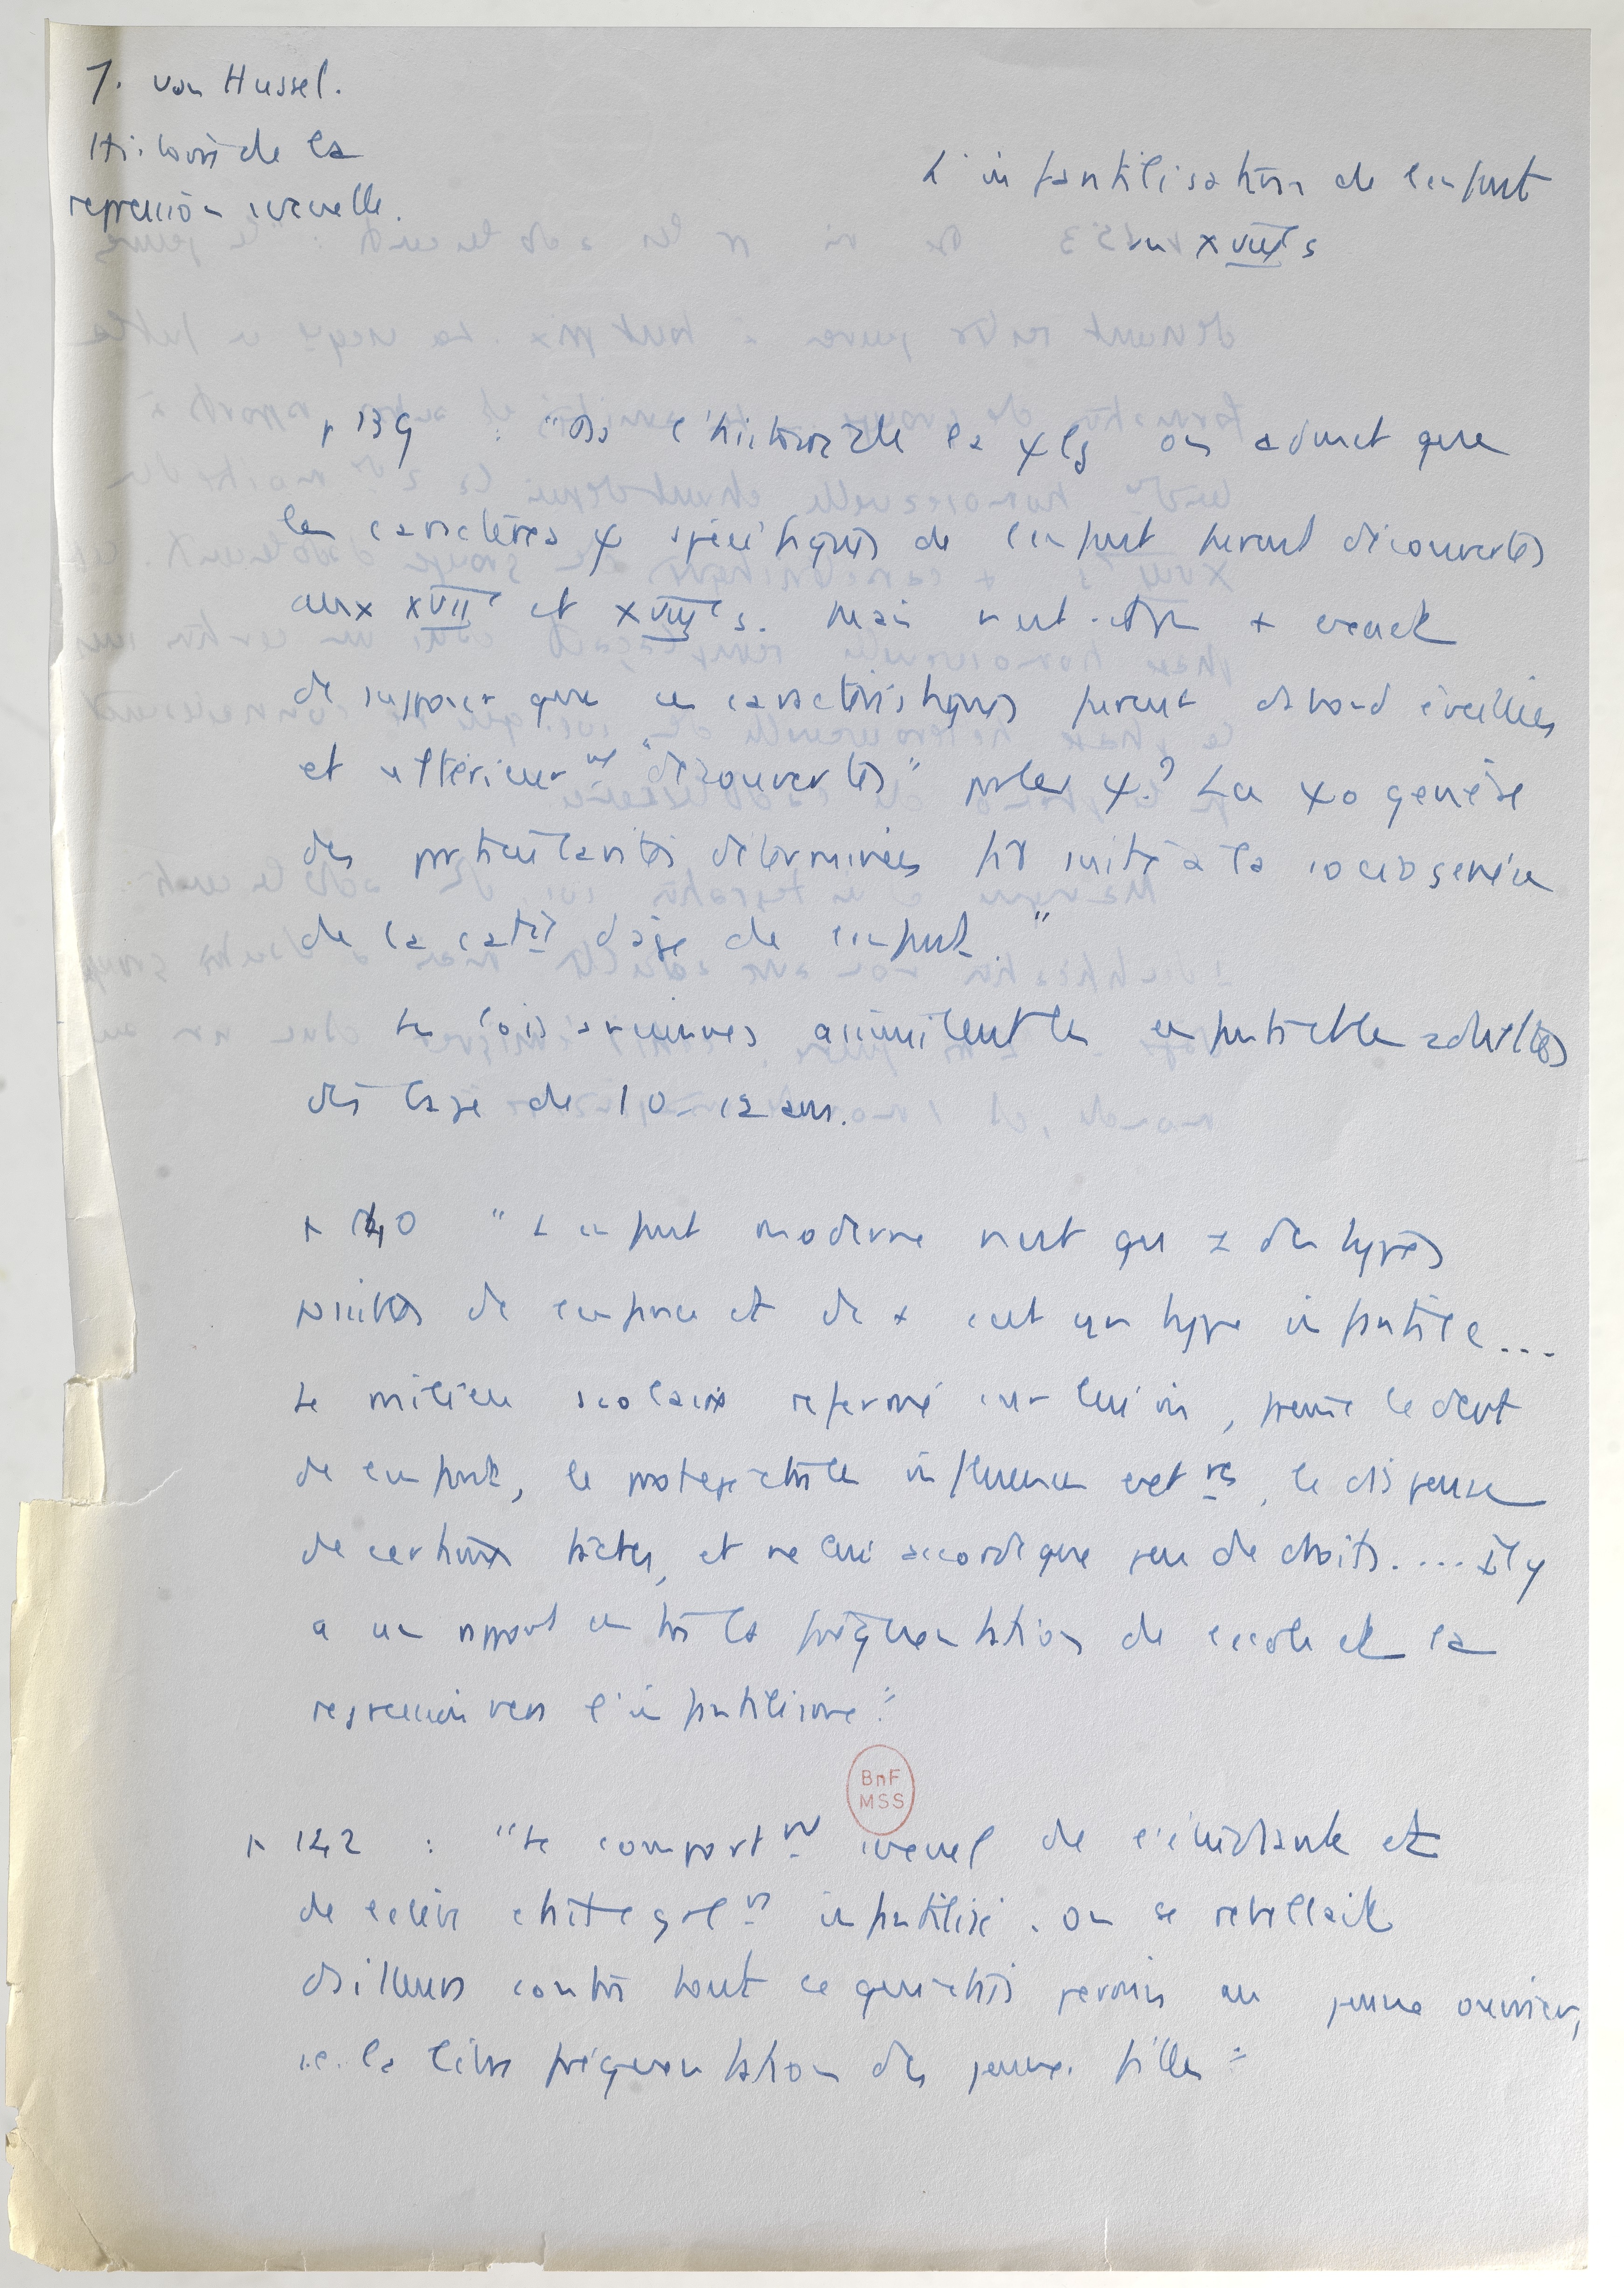 J. von Hussel.
Histoire de la
repression sexuelle.
L'infantilisation de l'enfant
au XVIIIe s
p 139 : "Ds l'histoire de la ψlg on admet que
les caractères ψ spécifiques de l'enfant furent découvertes
aux XVIIe et XVIIIe s. Mais n'est-ce pas + exact
de supposer que ces caractéristiques furent dabord éveillées
et ultérieurnt "découvertes" par les ψ.? La ψogenèse
des particularités déterminées fit suite à la sociogenèse
de la catrie dâge de enfant "
Les lois anciennes assimilent les enfants et les adultes
dès l'age de 10-12 ans.
p 140 "L'enfant moderne n'est qu'1 des types
possibles de enfance et de + c'est un type infantile...
Le milieu scolaire refermé sur lui mm, freine le devt
de enfant, le protège ctre les influences extres, le dispense
de certaines taches, et ne lui accorde que peu de droits.... Il y
a un rapport entre la fréquentation de ecole et la
regression vers l'infantilisme"
p 142 : "Le comportnt sexuel de l'étudiante et
de eleve était galnt infantilisé. On se rebellait
dailleurs contre tout ce qui était permis au jeune ouvrier,
i.e. la libre fréquentation des jeunes filles"
BnF
MSS